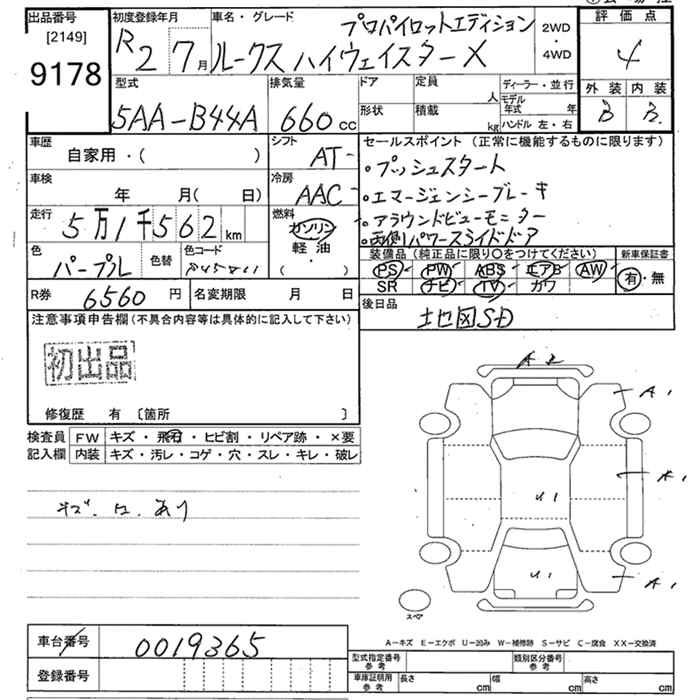 出品番号
[2149]
9178
初度登録年月
R2 7月
車名・グレード
プロパイロットエディション
ルークス ハイウェイスターX
2WD
4WD
評価点
4
外装 内装
B B
型式
5AA-B44A
排気量
660 cc
ドア
定員
人
形状
積載
kg
ディーラー・並行
モデル年式 年
ハンドル 左・右
車歴
自家用・( )
シフト
AT
車検
年 月( 日)
冷房
AAC
走行
5万1千562 km
燃料
ガソリン
軽油
( ・ )
色
パープル
色替
色コード
R券
6560 円
名変期限 月 日
セールスポイント(正常に機能するものに限ります)
・プッシュスタート
・エマージェンシーブレーキ
・アラウンドビューモニター
・両側パワースライドドア
装備品(純正品に限り○をつけてください)
新車保証書
PS PW ABS エアB AW
SR ナビ TV カワ
有・無
後日品
地図SD
注意事項申告欄(不具合内容等は具体的に記入して下さい)
初出品
修復歴 有〔箇所 〕
検査員記入欄
FW キズ・飛石・ヒビ割・リペア跡・×要
内装 キズ・汚レ・コゲ・穴・スレ・キレ・破レ
A2
A1
A1
U1
U1
A1
スペア
A-キズ E-エクボ U-凹み W-補修跡 S-サビ C-腐食 XX-交換済
車台番号
0019365
登録番号
型式指定番号 参考
類別区分番号 参考
車庫証明用 参考
長さ cm
幅 cm
高さ cm